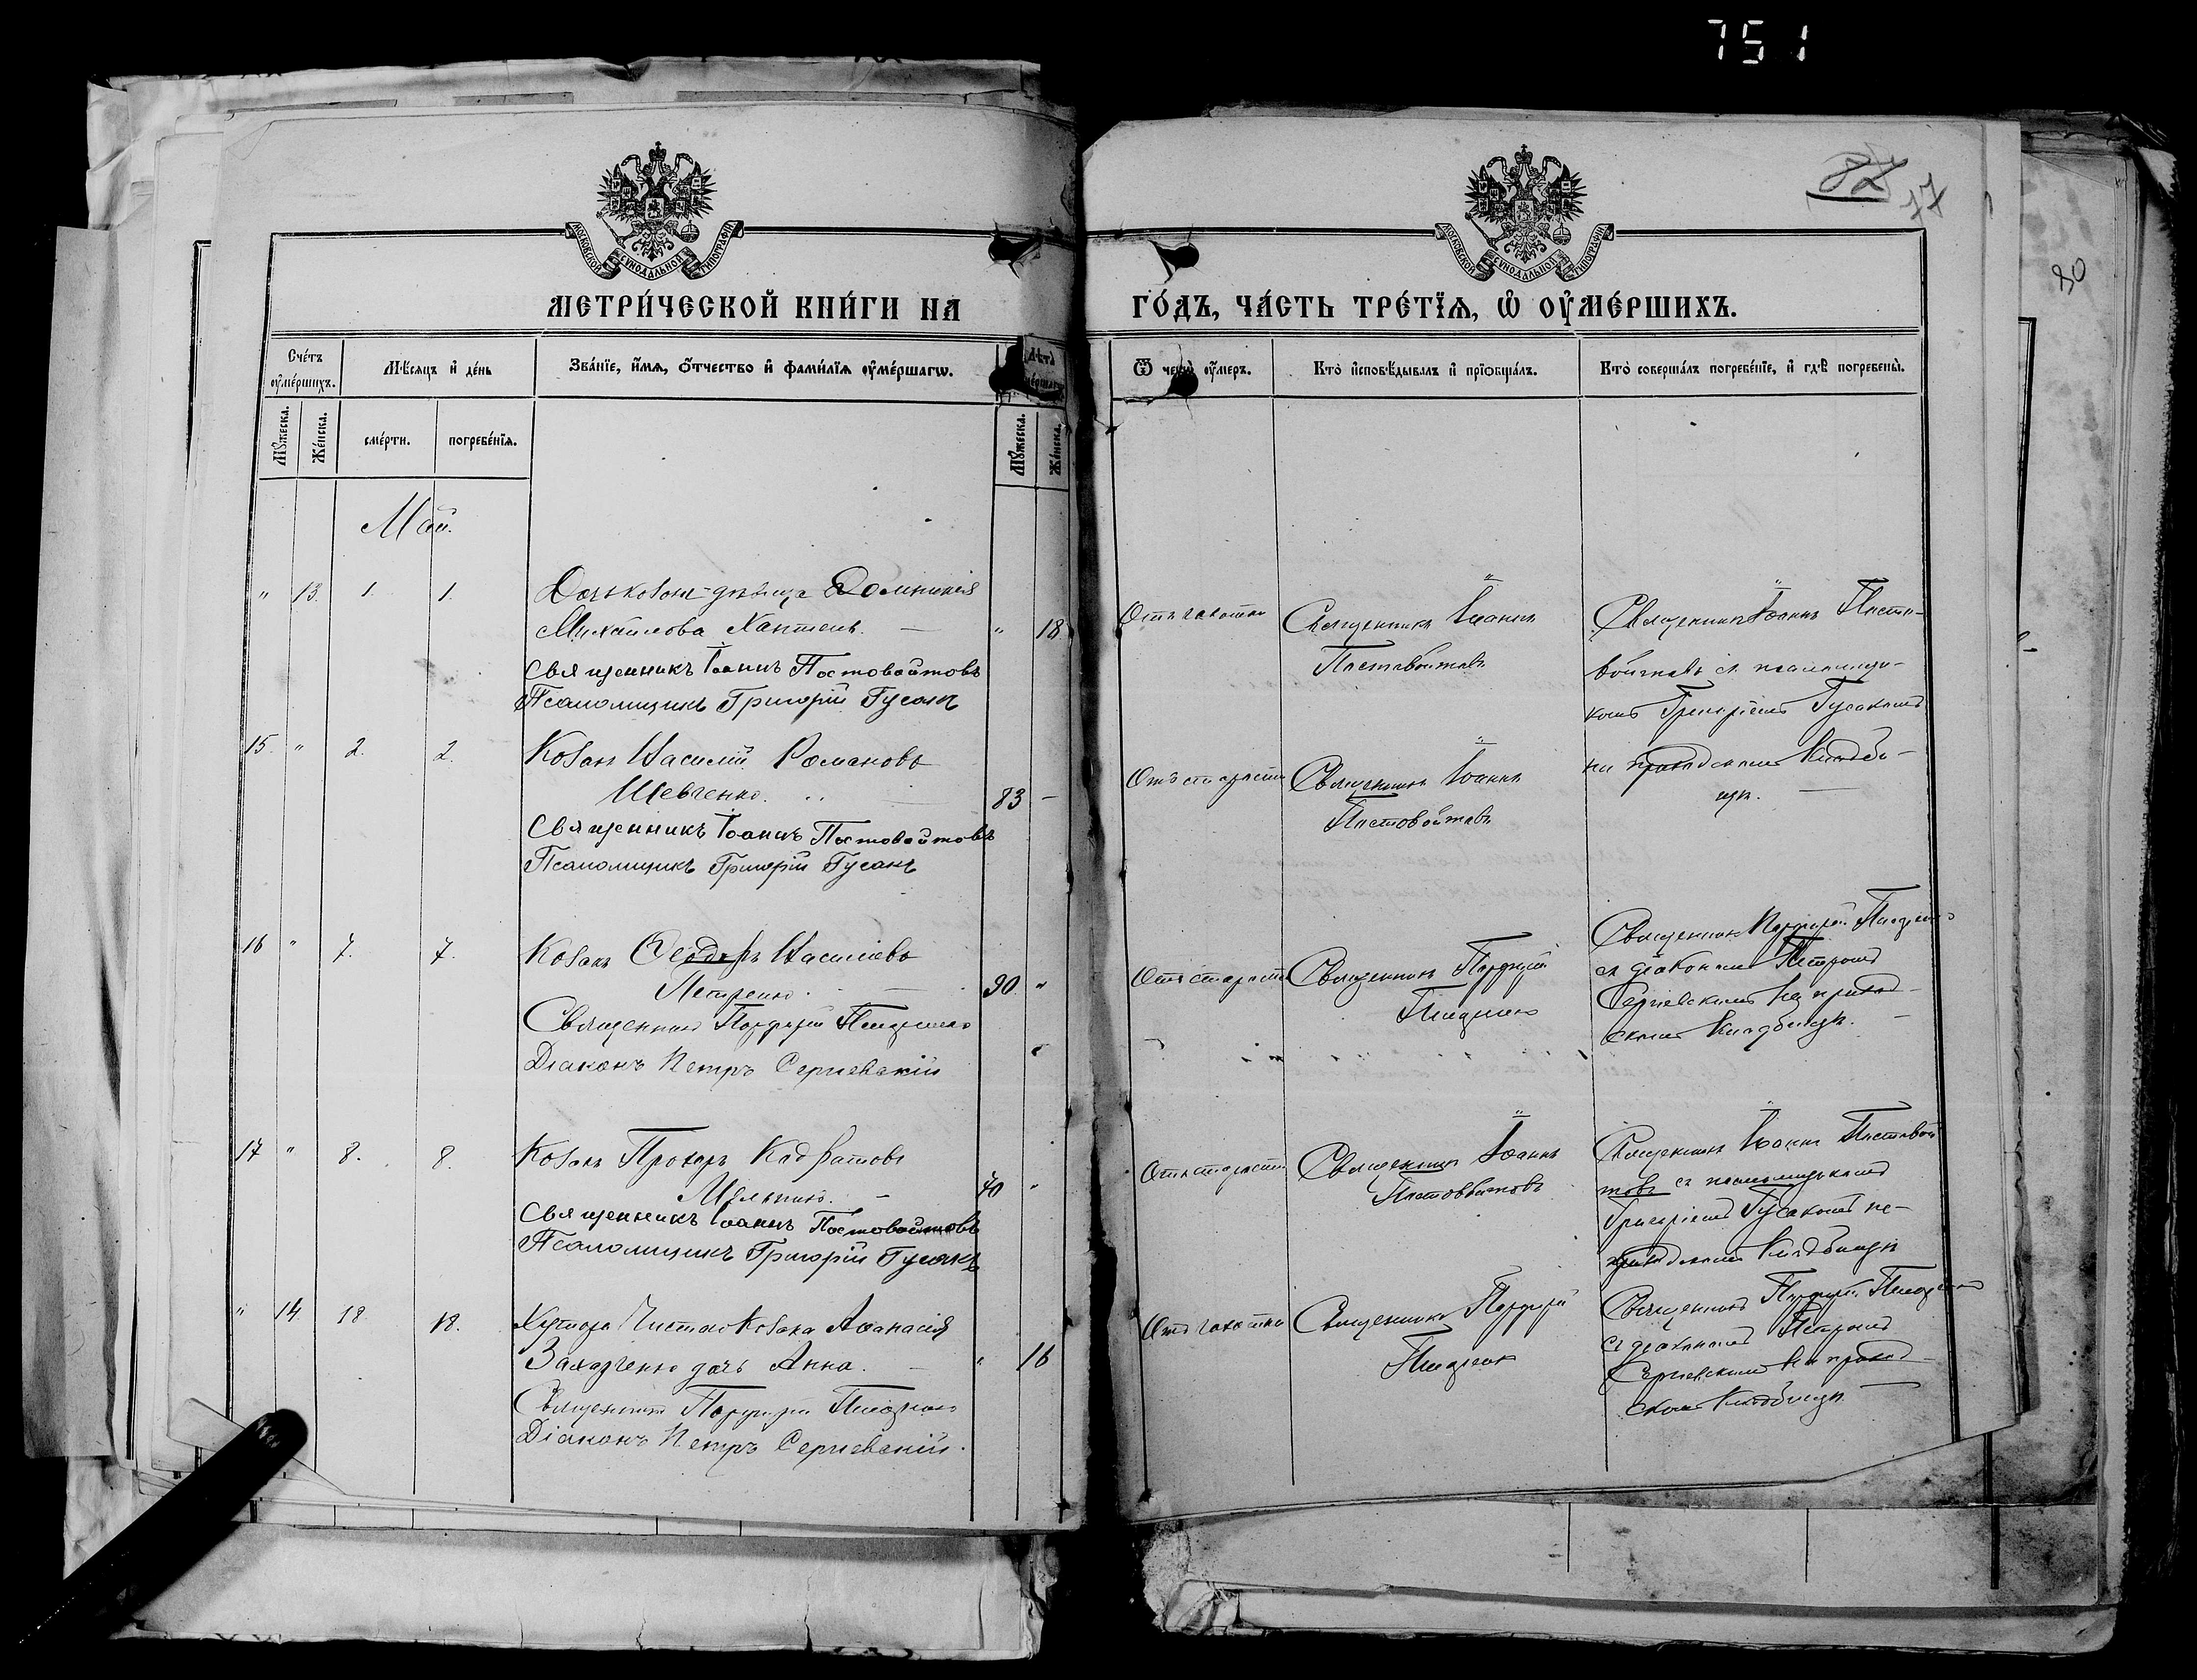 751
82
77
80
МОСКОВСКОЙ СѴНОДАЛЬНОЙ ТИПОГРАФІИ
МОСКОВСКОЙ СѴНОДАЛЬНОЙ ТИПОГРАФІИ
МЕТРИ́ЧЕСКОЙ КНИ́ГИ НА
ГО́ДЪ, ЧА́СТЬ ТРЕ́ТЇѦ, Ѡ҆ ОУ҆МЕ́РШИХЪ.
Сче́тъ оу҆ме́ршихъ.
Мѣсяцъ и҆ де́нь
Зва́нїе, и҆́мѧ, ѻ҆́тчество и҆ фами́лїѧ оу҆ме́ршагѡ.
Лѣта̀ оу҆ме́ршагѡ
Ѿ чегѡ̀ оу҆́меръ.
Кто̀ и҆сповѣ́дывалъ и҆ прїѻбща́лъ.
Кто̀ соверша́лъ погребе́нїе, и҆ гдѣ̀ погребены̀.
Мꙋ́жеска.
Же́нска.
сме́рти.
погребе́нїѧ.
Мꙋ́жеска.
Же́нска.
Май.
" 13. 1. 1. Дочь козака девица Домникія
Михайлова Лаптень. — " 18
Священникъ Іоаннъ Постовойтовъ
Псаломщикъ Григорій Гусакъ
Отъ чахотки
Священникъ Іоаннъ
Постовойтовъ
Священникъ Іоаннъ Посто-
войтовъ съ псаломщи-
комъ Григоріемъ Гусакомъ
на приходскомъ кладби-
щѣ. —
15. " 2. 2. Козакъ Василій Романовъ
Шевченко. 83 —
Священникъ Іоаннъ Постовойтовъ
Псаломщикъ Григорій Гусакъ
Отъ старости
Священникъ Іоаннъ
Постовойтовъ
16 " 7. 7. Козакъ Ѳеодоръ Васильевъ
Петренко. — 90. "
Священникъ Порфирій
Діаконъ Петръ Сергиевскій
Отъ старости
Священникъ Порфирій
Священникъ Порфирій
съ діакономъ Петромъ
Сергіевскимъ на приход-
скомъ кладбищѣ. —
17 " 8. 8. Козакъ Прохоръ Кодратовъ
Мельникъ. — 70 "
Священникъ Іоаннъ Постовойтовъ
Псаломщикъ Григорій Гусакъ
Отъ старости
Священникъ Іоаннъ
Постовойтовъ
Священникъ Іоаннъ Постовой
товъ съ псаломщикомъ
Григоріемъ Гусакомъ на
приходскомъ кладбищѣ
" 14. 18. 18. Хутора козака Аѳанасія
Захарченко дочь Анна. — " 16
Священникъ Порфирій
Діаконъ Петръ Сергиевскій.
Отъ чахотки
Священникъ Порфирій
Священникъ Порфирій
съ діакономъ Петромъ
Сергіевскимъ на приход-
скомъ кладбищѣ —